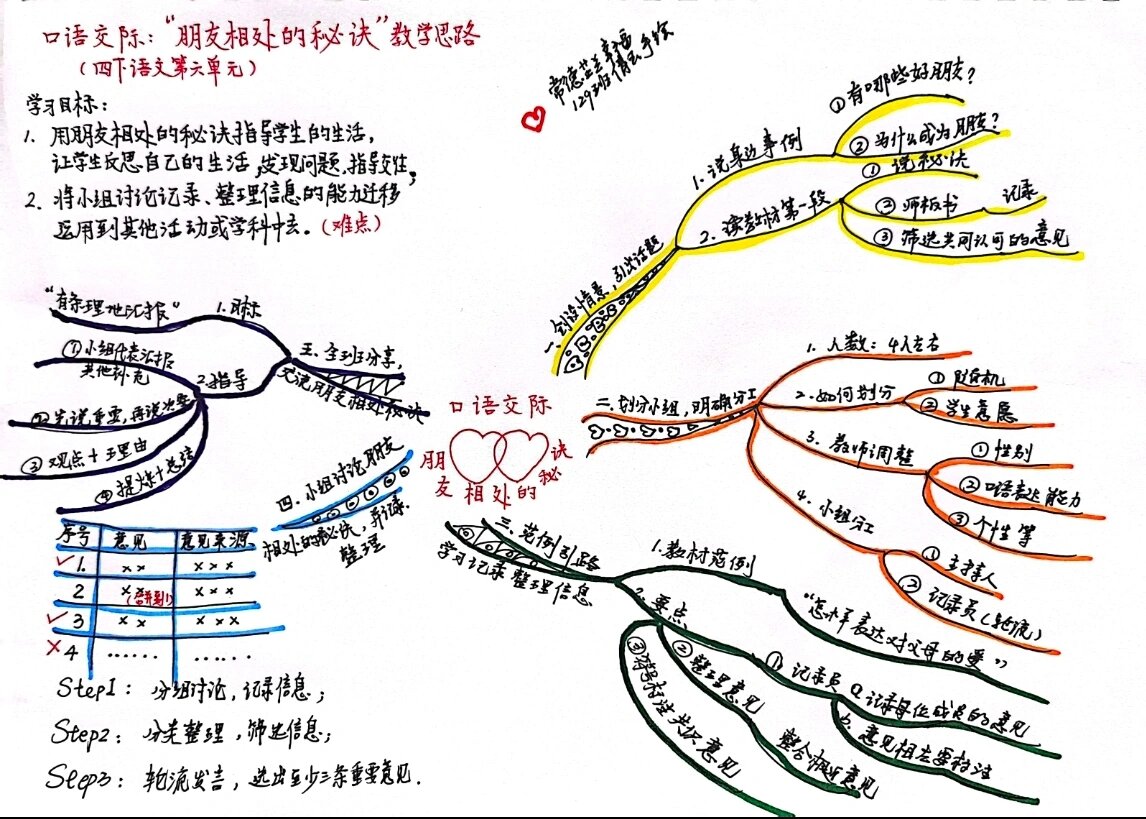 口语交际："朋友相处的秘诀"教学思路
（四下语文第六单元）
学习目标：
1. 用朋友相处的秘诀指导学生的生活，
让学生反思自己的生活，发现问题，指导交往，
2. 将小组讨论记录、整理信息的能力迁移
运用到其他活动或学科中去。（难点）
129班
手绘
一、创设情景，引出话题
1. 说身边事例
①有哪些好朋友？
②为什么成为朋友？
2. 读教材第一段
①说秘诀
②师板书 记录
③筛选共同认可的意见
二、划分小组，明确分工
1. 人数：4人左右
2. 如何划分
①随机
②学生意愿
3. 教师调整
①性别
②口语表达能力
③个性等
4. 小组分工
①主持人
②记录员（轮流）
三、范例引路
学习记录 整理信息
1. 教材范例
"怎样表达对父母的爱"
2. 要点
①记录员
a. 记录每位成员的意见
b. 意见相左要标注
②整理意见
整合相近意见
③符号标注共识意见
四、小组讨论朋友
相处的秘诀，并记录
整理
序号 意见 意见来源
✓1. ×× ×××
2 ×× (合并到1) ×××
✓3 ×× ×××
×4 …… ……
Step1：分组讨论，记录信息；
Step2：分类整理，筛选信息；
Step3：轮流发言，选出至少三条重要意见.
五、全班分享，
交流朋友相处秘诀
1. 目标
"有条理地汇报"
2. 指导
①小组代表汇报
其他补充
②先说重要，再说次要
③观点+理由
④提炼+总结
口语交际
朋友相处的秘诀